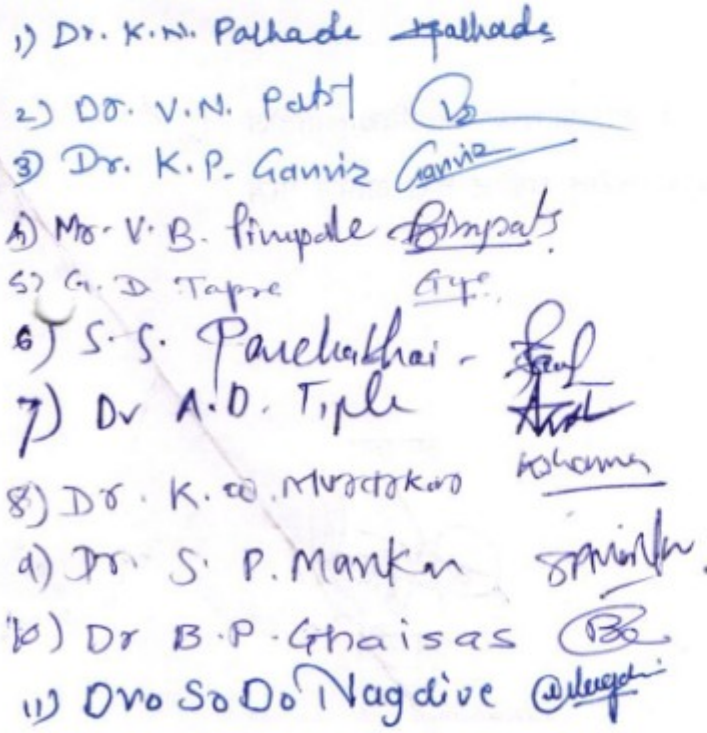 1) Dr. K.N. Palhade Palhade
2) Dr. V.N. Patil
3) Dr. K.P. Ganvir Ganvir
4) Mr. V.B. Pimpale
5) G.D Tapre
6) S.S. Panchbhai -
7) Dr A.D. Tiple
8) Dr. K.
9) Dr. S. P. Mankar
10) Dr B.P. Ghaisas
11) Dr. S. D. Nagdive